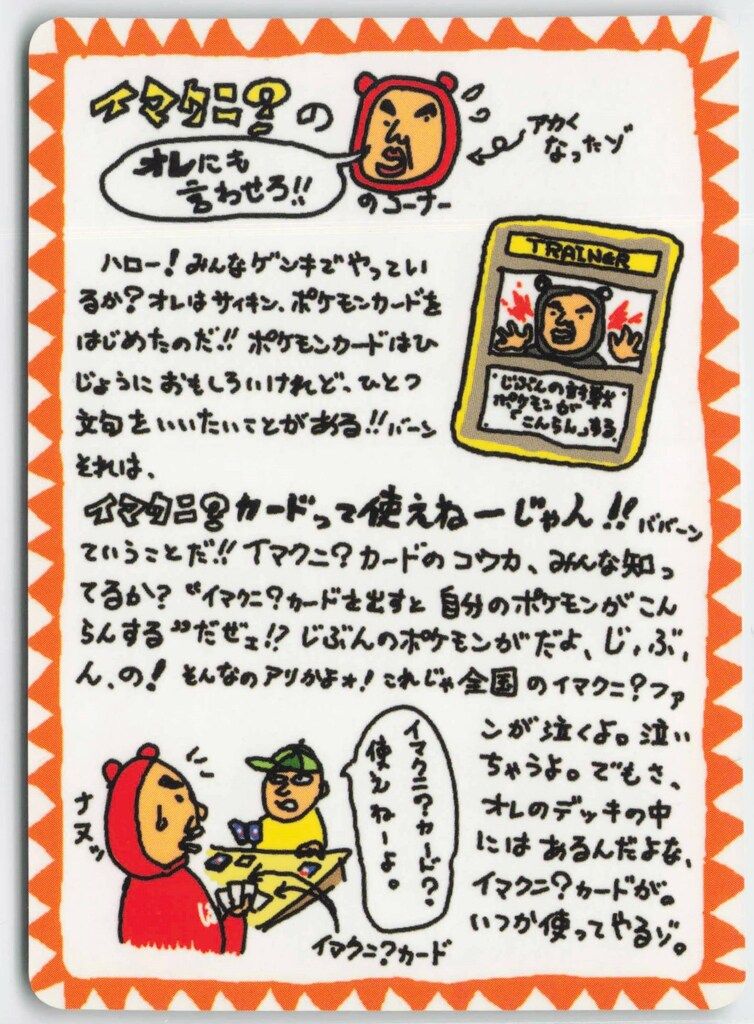 イマクニ?の
オレにも
言わせろ!!
のコーナー
アカく
なったゾ
ハロー!みんなゲンキでやってい
るか?オレはサイキン、ポケモンカードを
はじめたのだ!!ポケモンカードはひ
じょうにおもしろいけれど、ひとつ
文句をいいたいことがある!!バーン
それは、
TRAINER
じぶんの対戦
ポケモンが
「こんらん」する。
イマクニ?カードって使えねーじゃん!!ババーン
ていうことだ!!イマクニ?カードのコウカ、みんな知っ
てるか?〝イマクニ?カードを出すと自分のポケモンがこん
らんする〟だぜェ!?じぶんのポケモンがだよ、じ、ぶ、
ん、の!そんなのアリかよォ!これじゃ全国のイマクニ?ファ
ンが泣くよ。泣い
ちゃうよ。でもさ、
オレのデッキの中
にはあるんだよな、
イマクニ?カードが。
いつか使ってやるゾ。
ナヌッ
イマクニ?カード?
使えねーよ。
イマクニ?カード